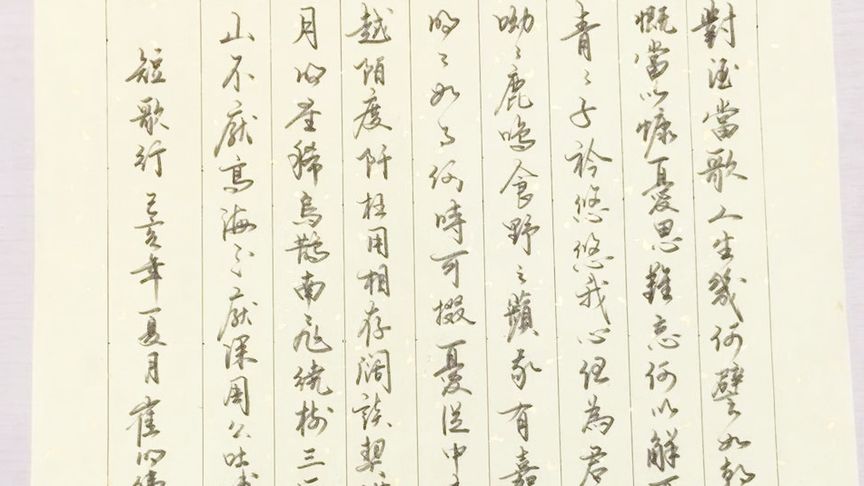 對酒當歌人生幾何譬如朝
慨當以慷憂思難忘何以解
青〻子衿悠悠我心但為君
呦〻鹿鳴食野之蘋我有嘉
明〻如月何時可掇憂從中
越陌度阡枉用相存闊談契
月明星稀烏鵲南飛繞樹三
山不厭高海不厭深周公吐
短歌行己亥年夏月崔明